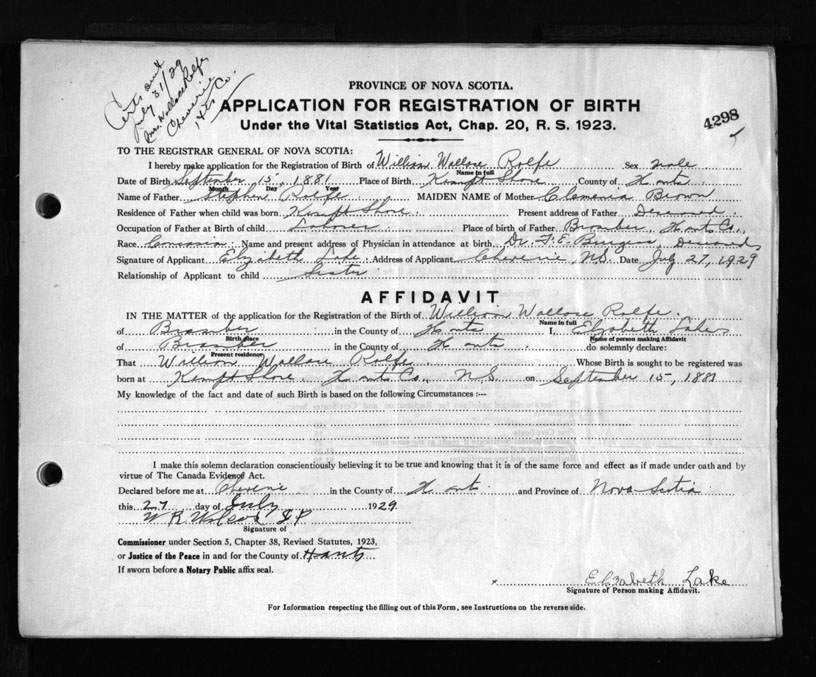 Certs out
July 31/29
Mrs. Wallace Rolfe
Cheverie
Hts Co.
PROVINCE OF NOVA SCOTIA.
APPLICATION FOR REGISTRATION OF BIRTH
Under the Vital Statistics Act, Chap. 20, R. S. 1923.
4298
TO THE REGISTRAR GENERAL OF NOVA SCOTIA:
I hereby make application for the Registration of Birth of William Wallace Rolfe Sex male
Name in full
Date of Birth September 15, 1881 Place of Birth Kempt Shore County of Hants
Month Day Year
Name of Father Stephen Rolfe MAIDEN NAME of Mother Clemenia Brown
Residence of Father when child was born Kempt Shore Present address of Father Deceased
Occupation of Father at Birth of child Laborer Place of birth of Father Bramber, Hants Co.,
Race Name and present address of Physician in attendance at birth Dr. F. E. Burgess, Deceased
Signature of Applicant Elizabeth Lake Address of Applicant Cheverie, N.S. Date July 27, 1929
Relationship of Applicant to child Sister
AFFIDAVIT
IN THE MATTER of the application for the Registration of the Birth of William Wallace Rolfe
Name in full
of Bramber in the County of Hants I, Elizabeth Lake
Birth place Name of person making Affidavit
of Bramber in the County of Hants do solemnly declare:
Present residence
That William Wallace Rolfe Whose Birth is sought to be registered was
born at Kempt Shore, Hants Co., N.S. on September 15, 1881
My knowledge of the fact and date of such Birth is based on the following Circumstances :—
I make this solemn declaration conscientiously believing it to be true and knowing that it is of the same force and effect as if made under oath and by
virtue of The Canada Evidence Act.
Declared before me at Cheverie in the County of Hants and Province of Nova Scotia
this 27 day of July 1929
W R J P
Signature of
Commissioner under Section 5, Chapter 38, Revised Statutes, 1923,
or Justice of the Peace in and for the County of Hants
If sworn before a Notary Public affix seal.
x Elizabeth Lake
Signature of Person making Affidavit.
For Information respecting the filling out of this Form, see Instructions on the reverse side.